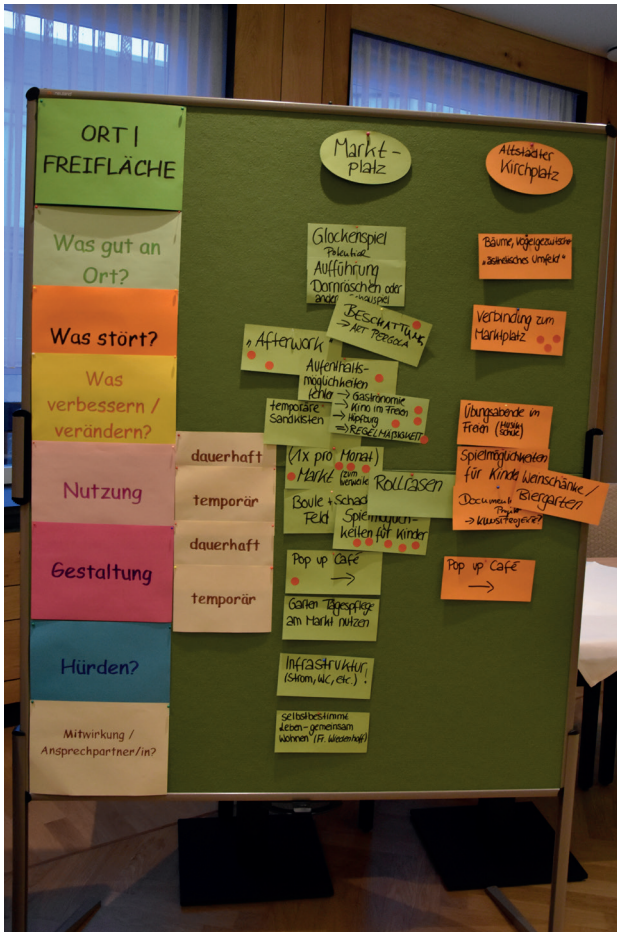 ORT |
FREIFLÄCHE
Was gut an
Ort?
Was stört?
Was
verbessern /
verändern?
Nutzung
dauerhaft
temporär
Gestaltung
dauerhaft
temporär
Hürden?
Mitwirkung /
Ansprechpartner/in?
Markt-
platz
Glockenspiel
Potential
Aufführung
Dornröschen oder
Schauspiel
BESCHATTUNG
→ ART PERGOLA
"Afterwork"
Aufenthalts-
möglichkeiten
→ Gastronomie
→ Kino im Freien
→ Hüpfburg
⇒ REGELMÄßIGKEIT
temporäre
Sandkisten
(1x pro Monat)
Markt (zum
Rollrasen
Boule + Schach
Feld
Spielmöglich-
keiten für Kinder
Pop up Café
→
Garten Tagespflege
am Markt nutzen
Infrastruktur!
(Strom, WC, etc.)
selbstbestimmt
Leben - gemeinsam
Wohnen (Fr. Wiedenhoff)
Altstädter
Kirchplatz
Bäume, Vogelgezwitscher
"ästhetisches Umfeld"
Verbindung zum
Marktplatz
Übungsabende im
Freien (Musik-
schule)
Spielmöglichkeiten
für Kinder
Weinschänke /
Biergarten
Pop up Café
→